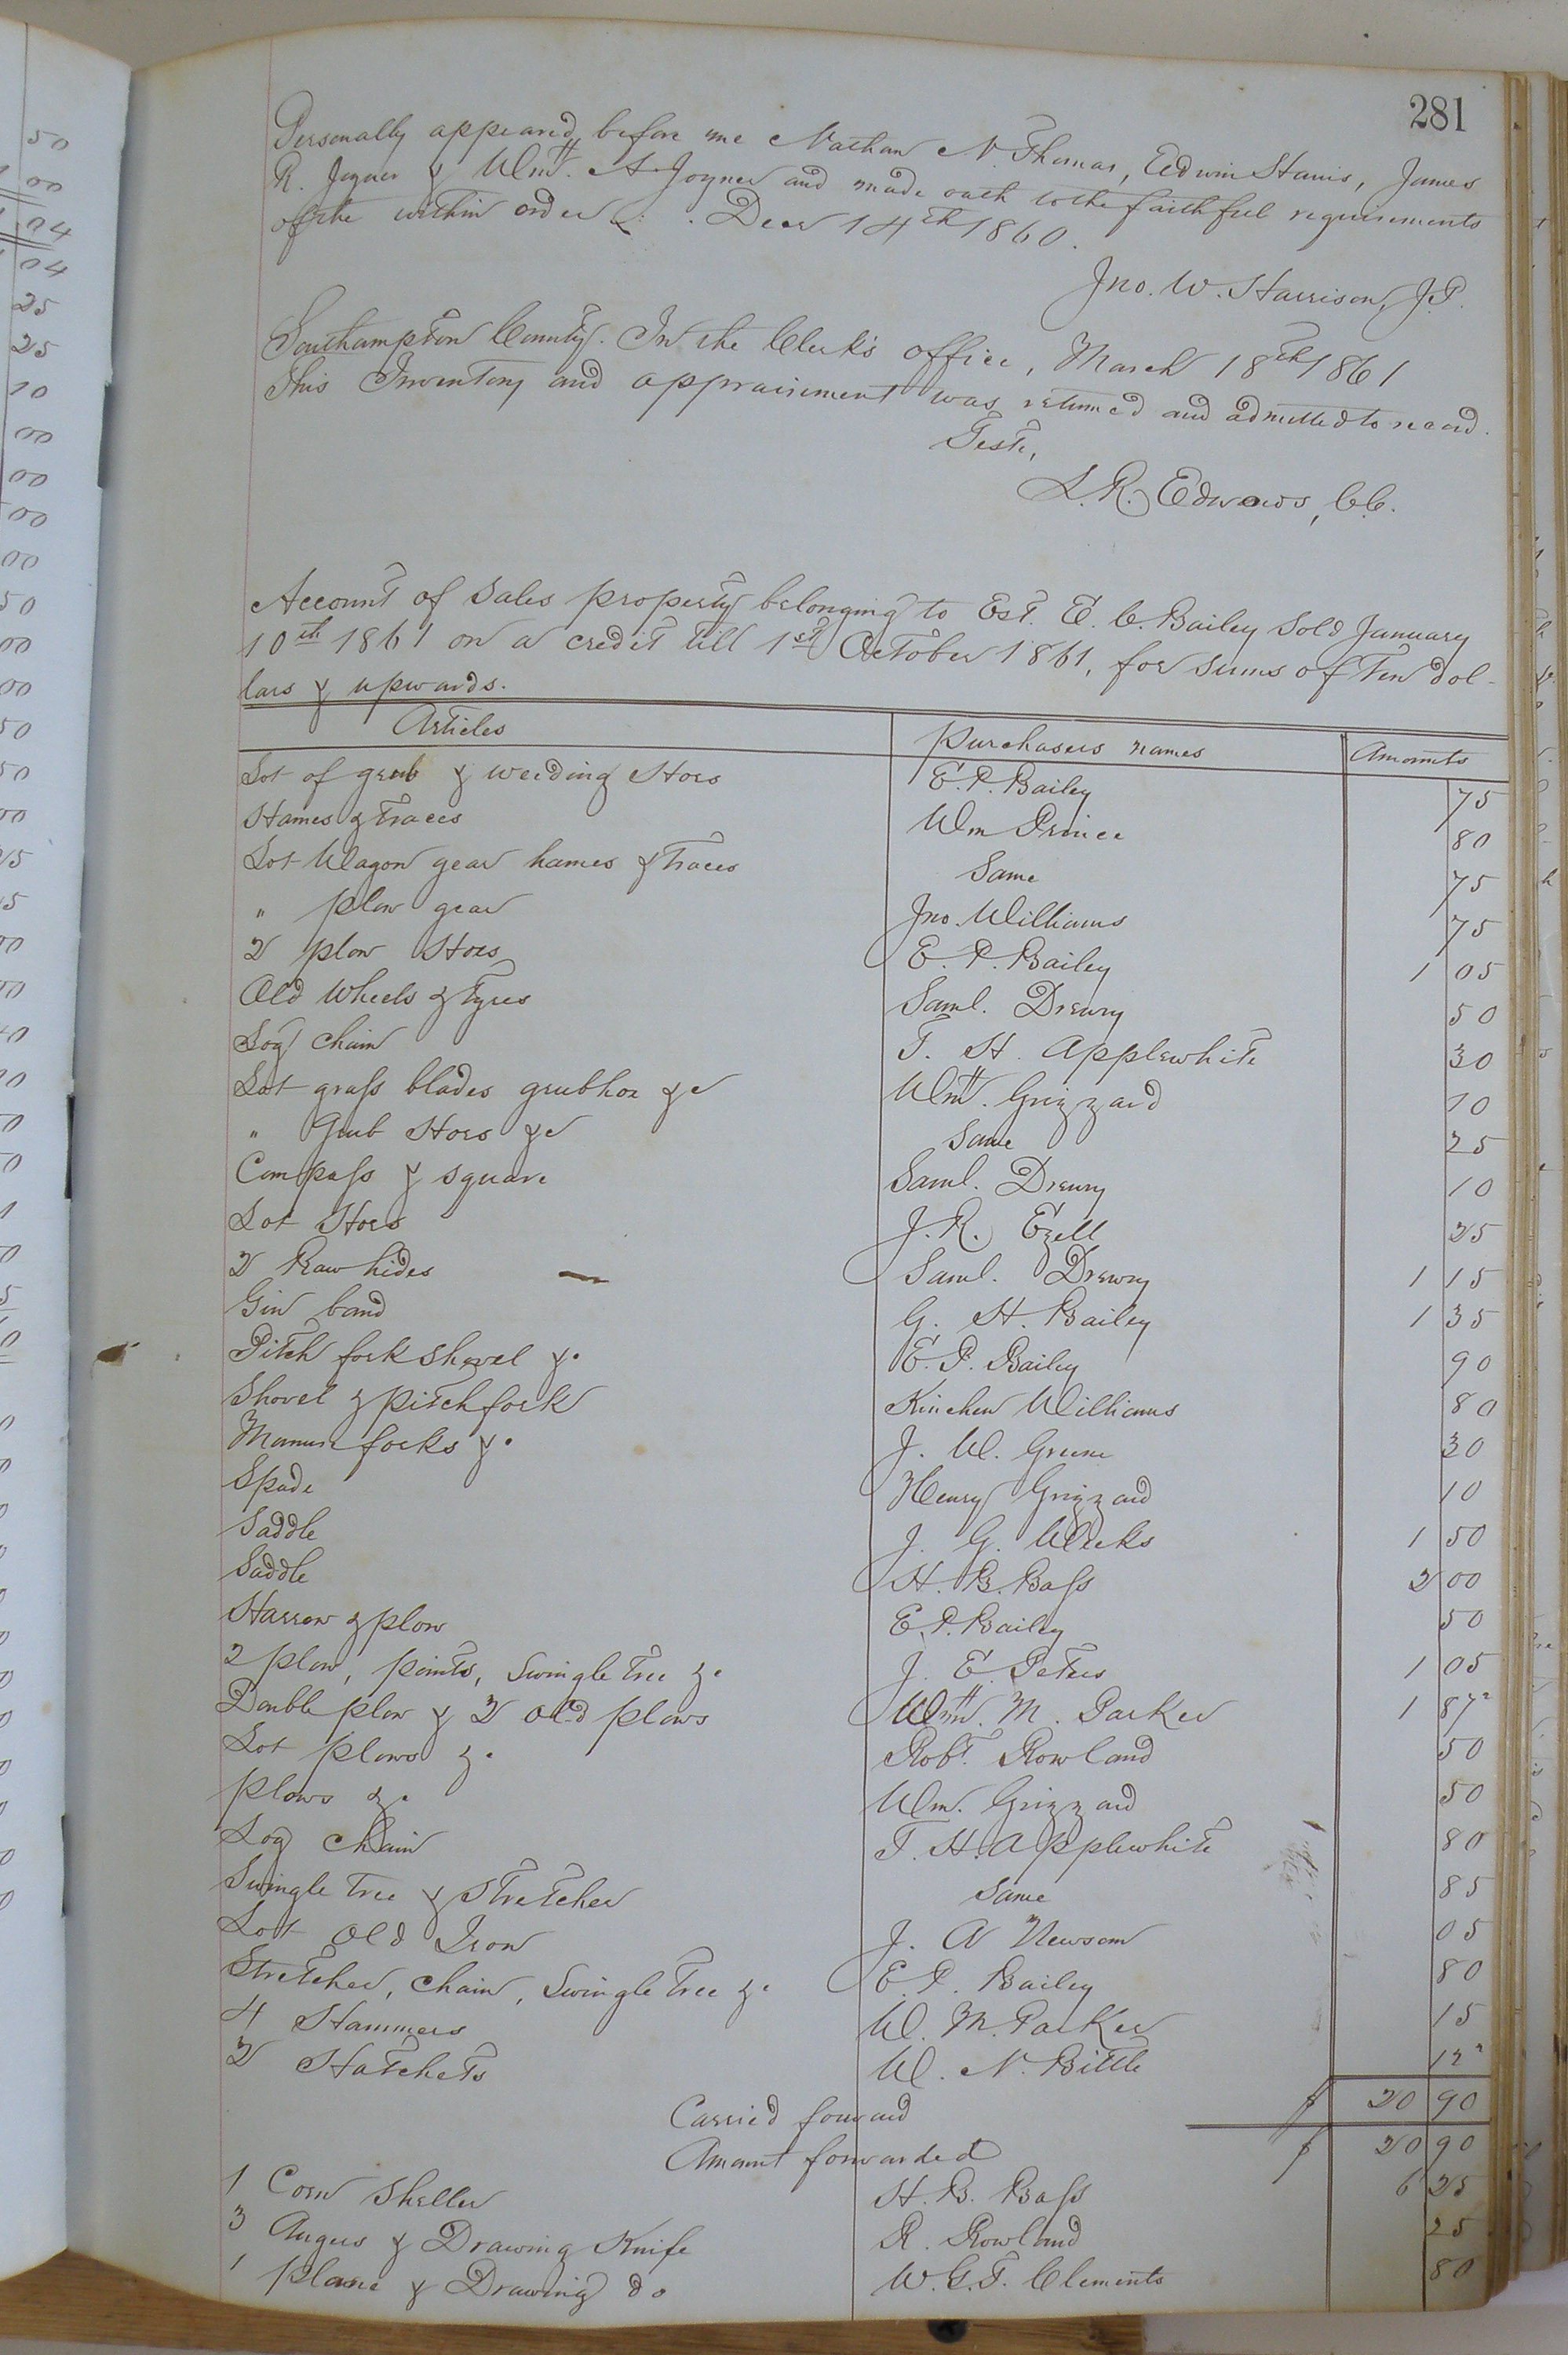 281
Personally appeared before me Nathan N. Thomas, Edwin Harris, James
R. Joyner & Wm. A. Joyner and made oath to the faithful requirements
of the within order. Decr 14th 1860.
Jno. W. Harrison, J.P.
Southampton County. In the Clerk's office, March 18th 1861
This Inventory and appraisement was returned and admitted to record.
Teste,
L. R. Edwards, C.C.
Account of sales property belonging to Est. E. C. Bailey sold January
10th 1861 on a credit till 1st October 1861, for sums of Ten dol-
lars & upwards.
Articles Purchasers names Amounts
Lot of grub & weeding Hoes E. P. Bailey 75
Hames & Traces Wm Prince 80
Lot Wagon gear hames & Traces Same 75
" plow gear Jno. Williams 75
2 plow Hoes E. P. Bailey 1 05
Old Wheels & Tyres Saml. Drewry 50
Log chain T. H. Applewhite 30
Lot grass blades grubhoe &c Wm. Grizzard 10
" Grub Hoes &c Same 25
Compass & square Saml. Drewry 10
Lot Hoes J. R. Ezell 25
2 Raw hides Saml. Drewry 1 15
Gin band G. H. Bailey 1 35
Pitch fork shovel &. E. P. Bailey 90
Shovel & pitchfork Kinchen Williams 80
Manure forks &. J. W. Greene 30
Spade Henry Grizzard 10
Saddle J. G. Weeks 1 50
Saddle H. B. Bass 2 00
Harrow & plow E. P. Bailey 50
2 plow, points, Swingle Tree &. J. E. Peters 1 05
Double plow & 2 old plows Wm. M. Parker 1 87²
Lot plows &. Robt. Rowland 50
Plows &. Wm. Grizzard 50
Log chain T. H. Applewhite 80
Swingle Tree & Stretcher Same 85
Lot Old Iron J. A Newsom 05
Stretcher, chain, Swingle Tree &. E. P. Bailey 80
4 Hammers W. M. Parker 15
2 Hatchets W. N. Bittle 12²
Carried forward $ 20 90
Amount forwarded $ 20 90
1 Corn Sheller H. B. Bass 6 25
3 Augers & Drawing Knife R. Rowland 25
1 Plane & Drawing do W. G. T. Clements 80